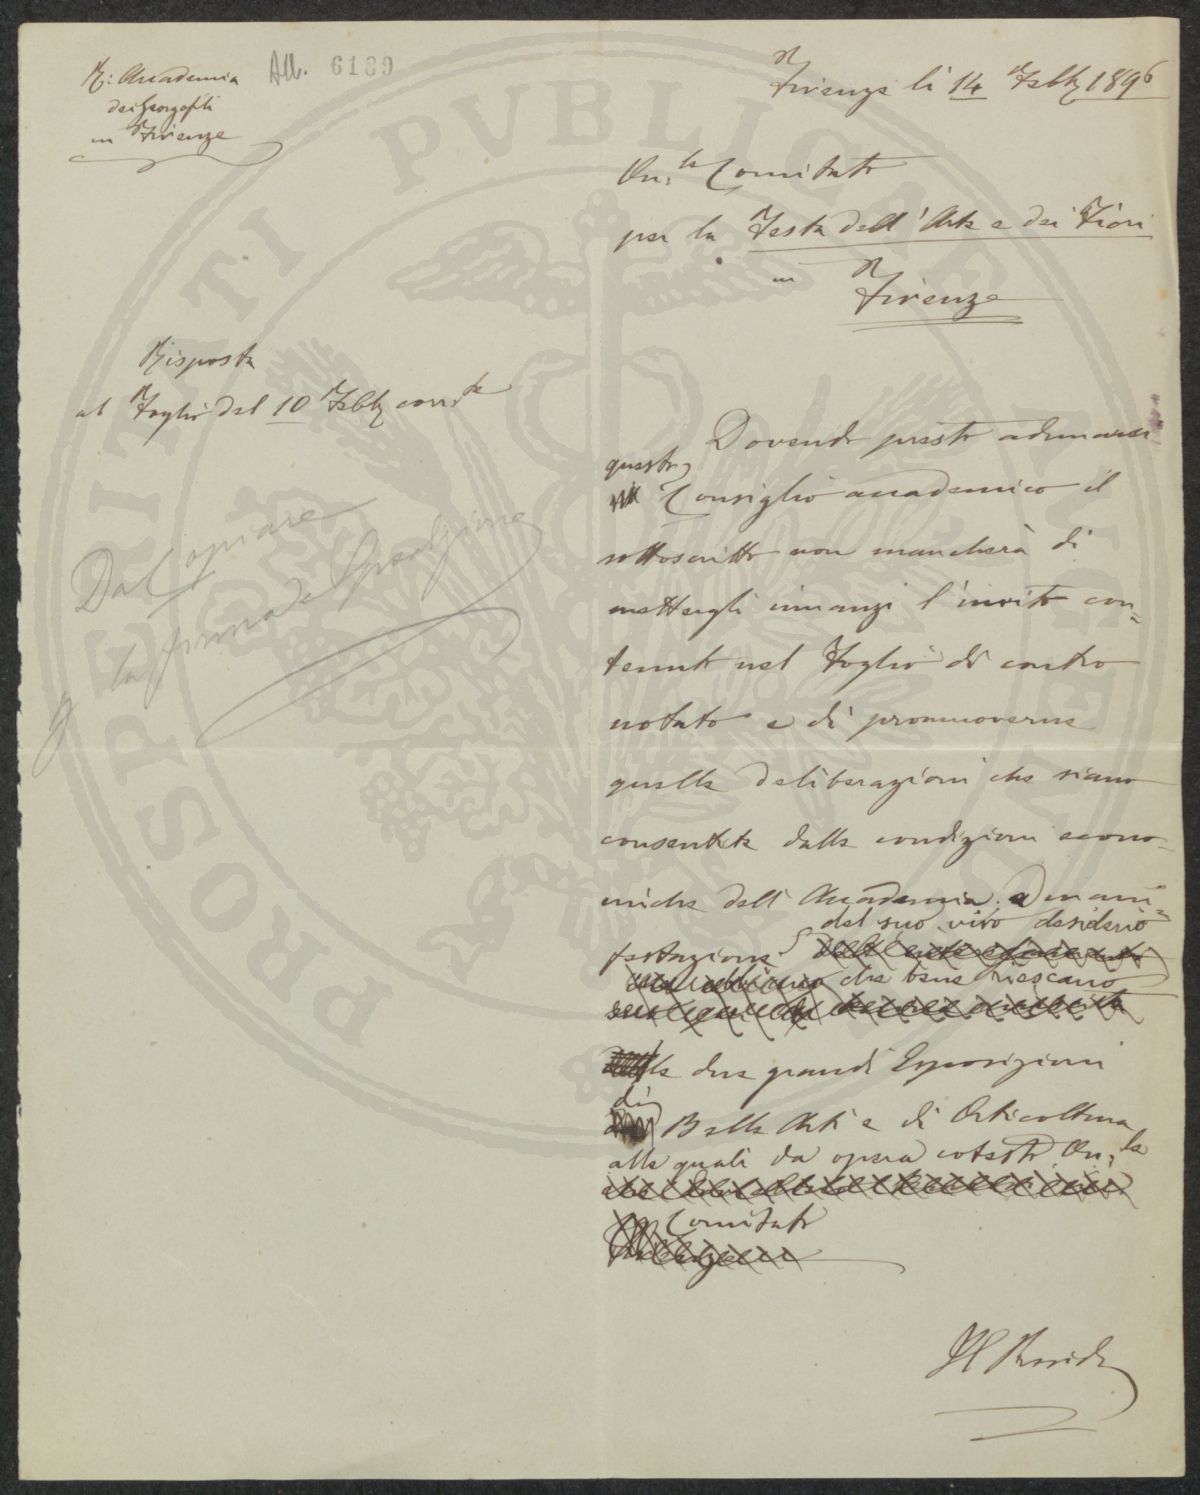 R: Accademia
dei Georgofili
in Firenze
All. 6189
Firenze li 14 Febb 1896
On.le Comitato
per la Festa dell'Arte e dei Fiori
in Firenze
Risposta
al Foglio del 10 Febb corrte
Da copiare
la firma del
Dovendo presto adunarsi
questo
Consiglio accademico il
sottoscritto non mancherà di
mettergli innanzi l'invito con=
tenuto nel Foglio di contro
notato e di promuoverne
quelle deliberazioni che siano
consentite dalle condizioni econo=
miche dell'Accademia. a mani=
del suo vivo desiderio
festazione
che bene riescano
le due grandi Esposizioni
di
Belle Arti e di Orticoltura
alle quali da opera cotesto On.le
Comitato
Il Presidte
PROSPERITATI PUBLICAE AUGENDAE